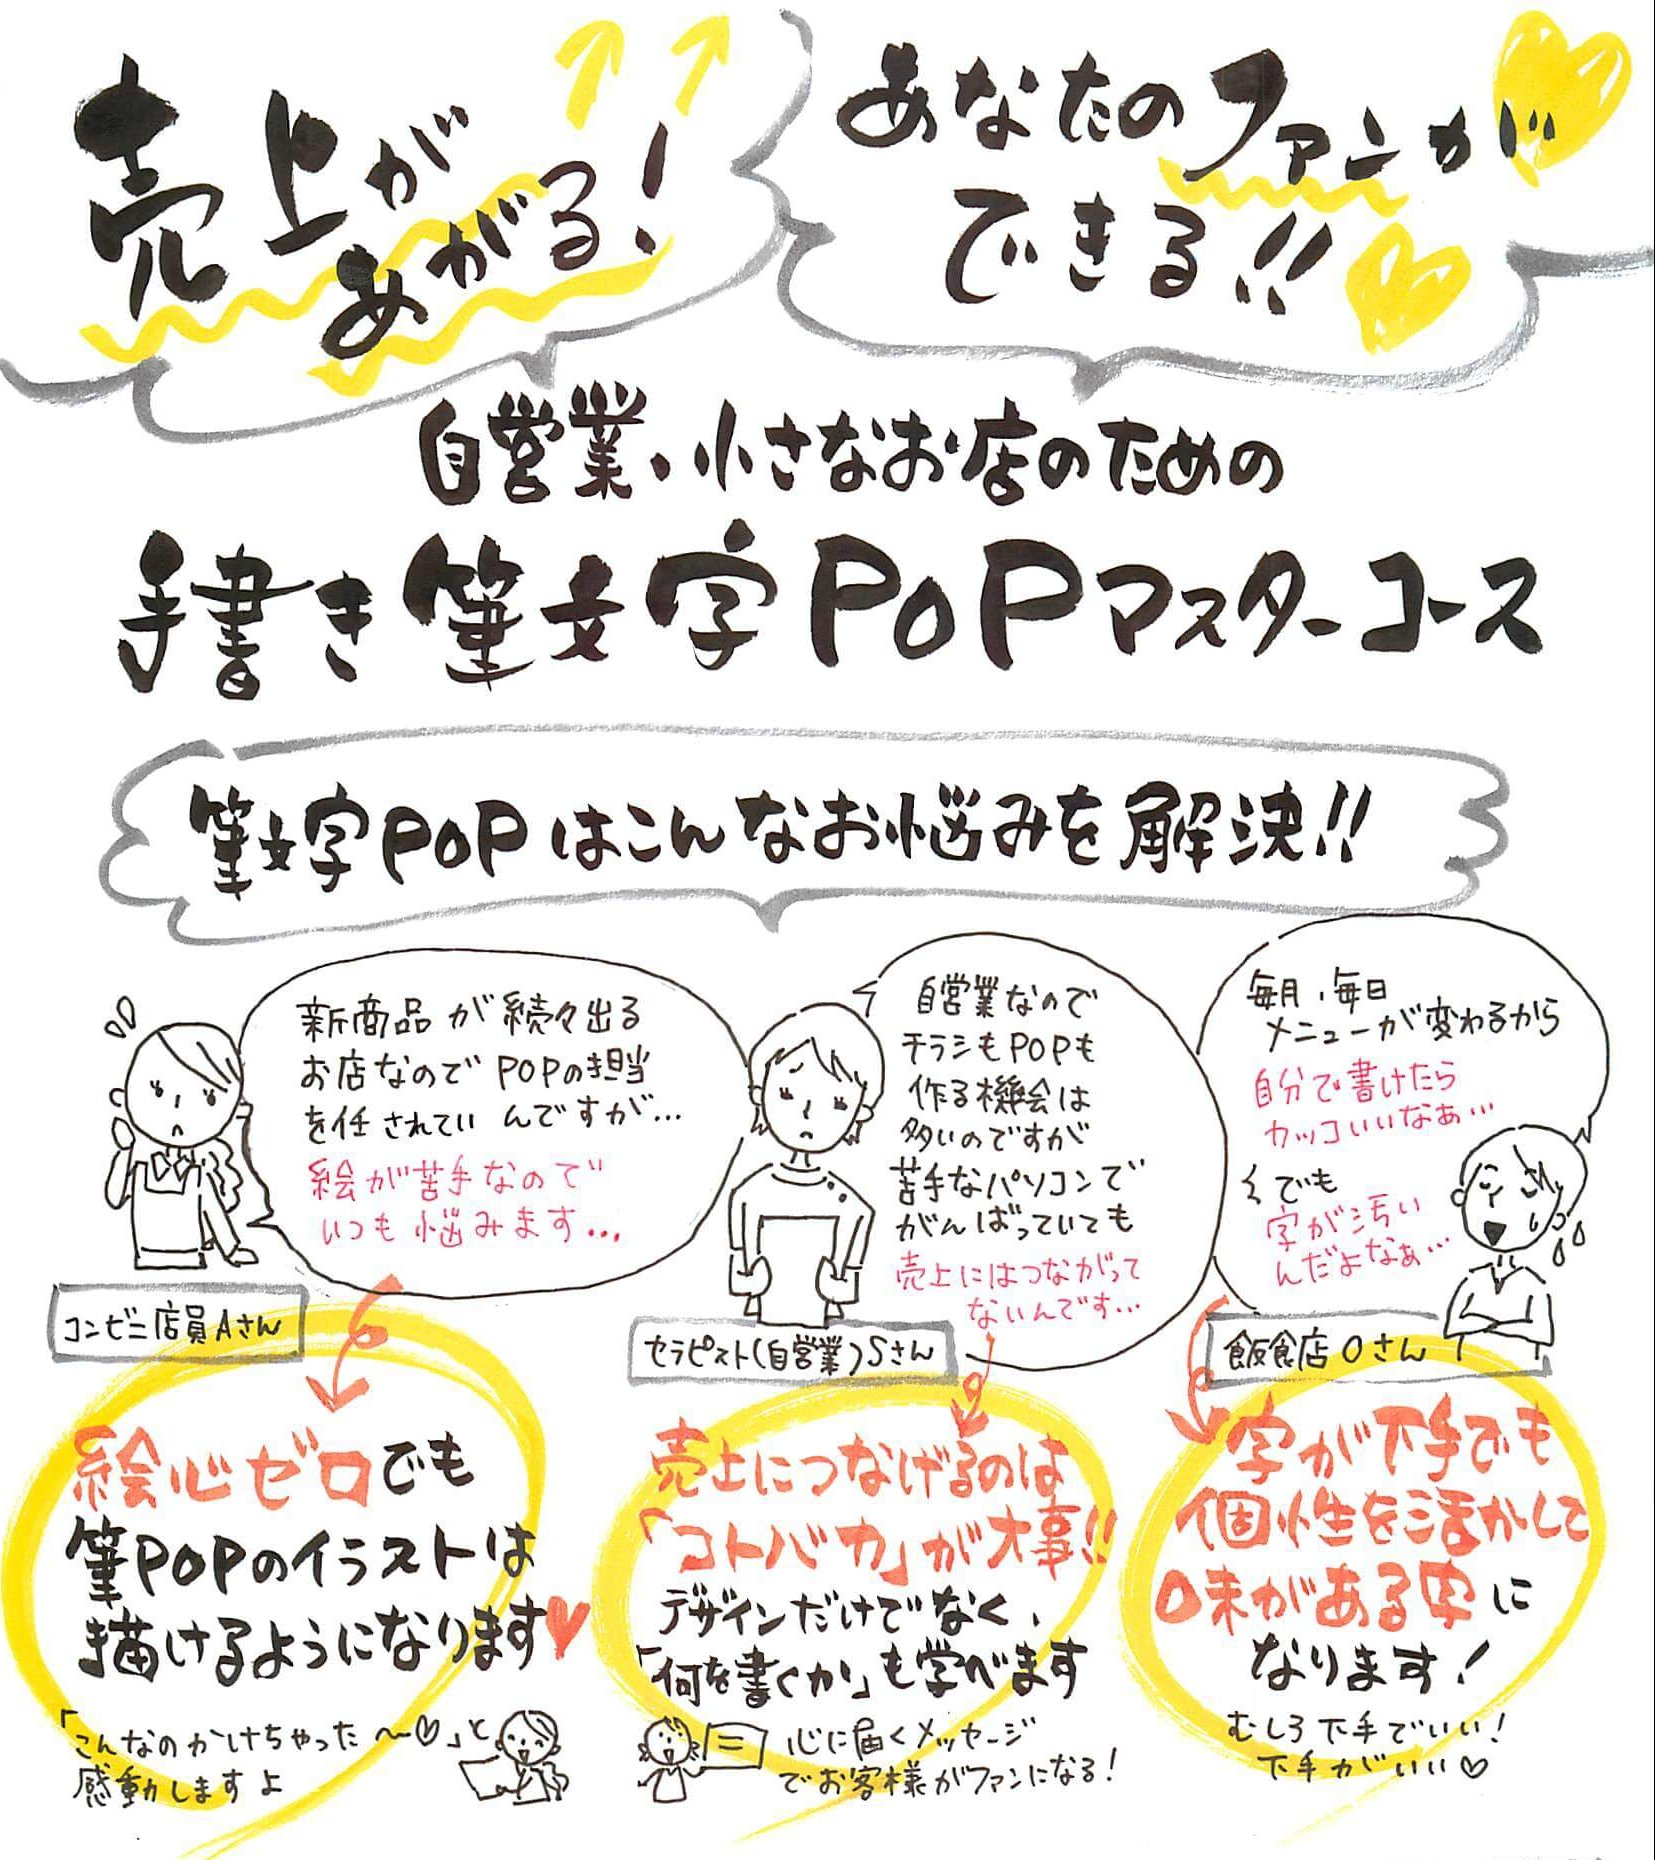 売上が
あがる!
あなたのファンが
できる!!
自営業、小さなお店のための
手書き筆文字POPマスターコース
筆文字POPはこんなお悩みを解決!!
新商品が続々出る
お店なのでPOPの担当
を任されているんですが…
絵が苦手なので
いつも悩みます…
コンビニ店員Aさん
自営業なので
チラシもPOPも
作る機会は
多いのですが
苦手なパソコンで
がんばっていても
売上にはつながって
ないんです…
セラピスト(自営業)Sさん
毎月、毎日
メニューが変わるから
自分で書けたら
カッコいいなぁ…
でも
字が汚い
んだよなぁ…
飲食店Oさん
絵心ゼロでも
筆POPのイラストは
描けるようになります♥
「こんなのかけちゃった〜♡」と
感動しますよ
売上につなげるのは
「コトバ力」が大事!!
デザインだけでなく、
「何を書くか」も学べます
心に届くメッセージ
でお客様がファンになる!
字が下手でも
個性を活かして
味がある字に
なります!
むしろ下手でいい!
下手がいい♡